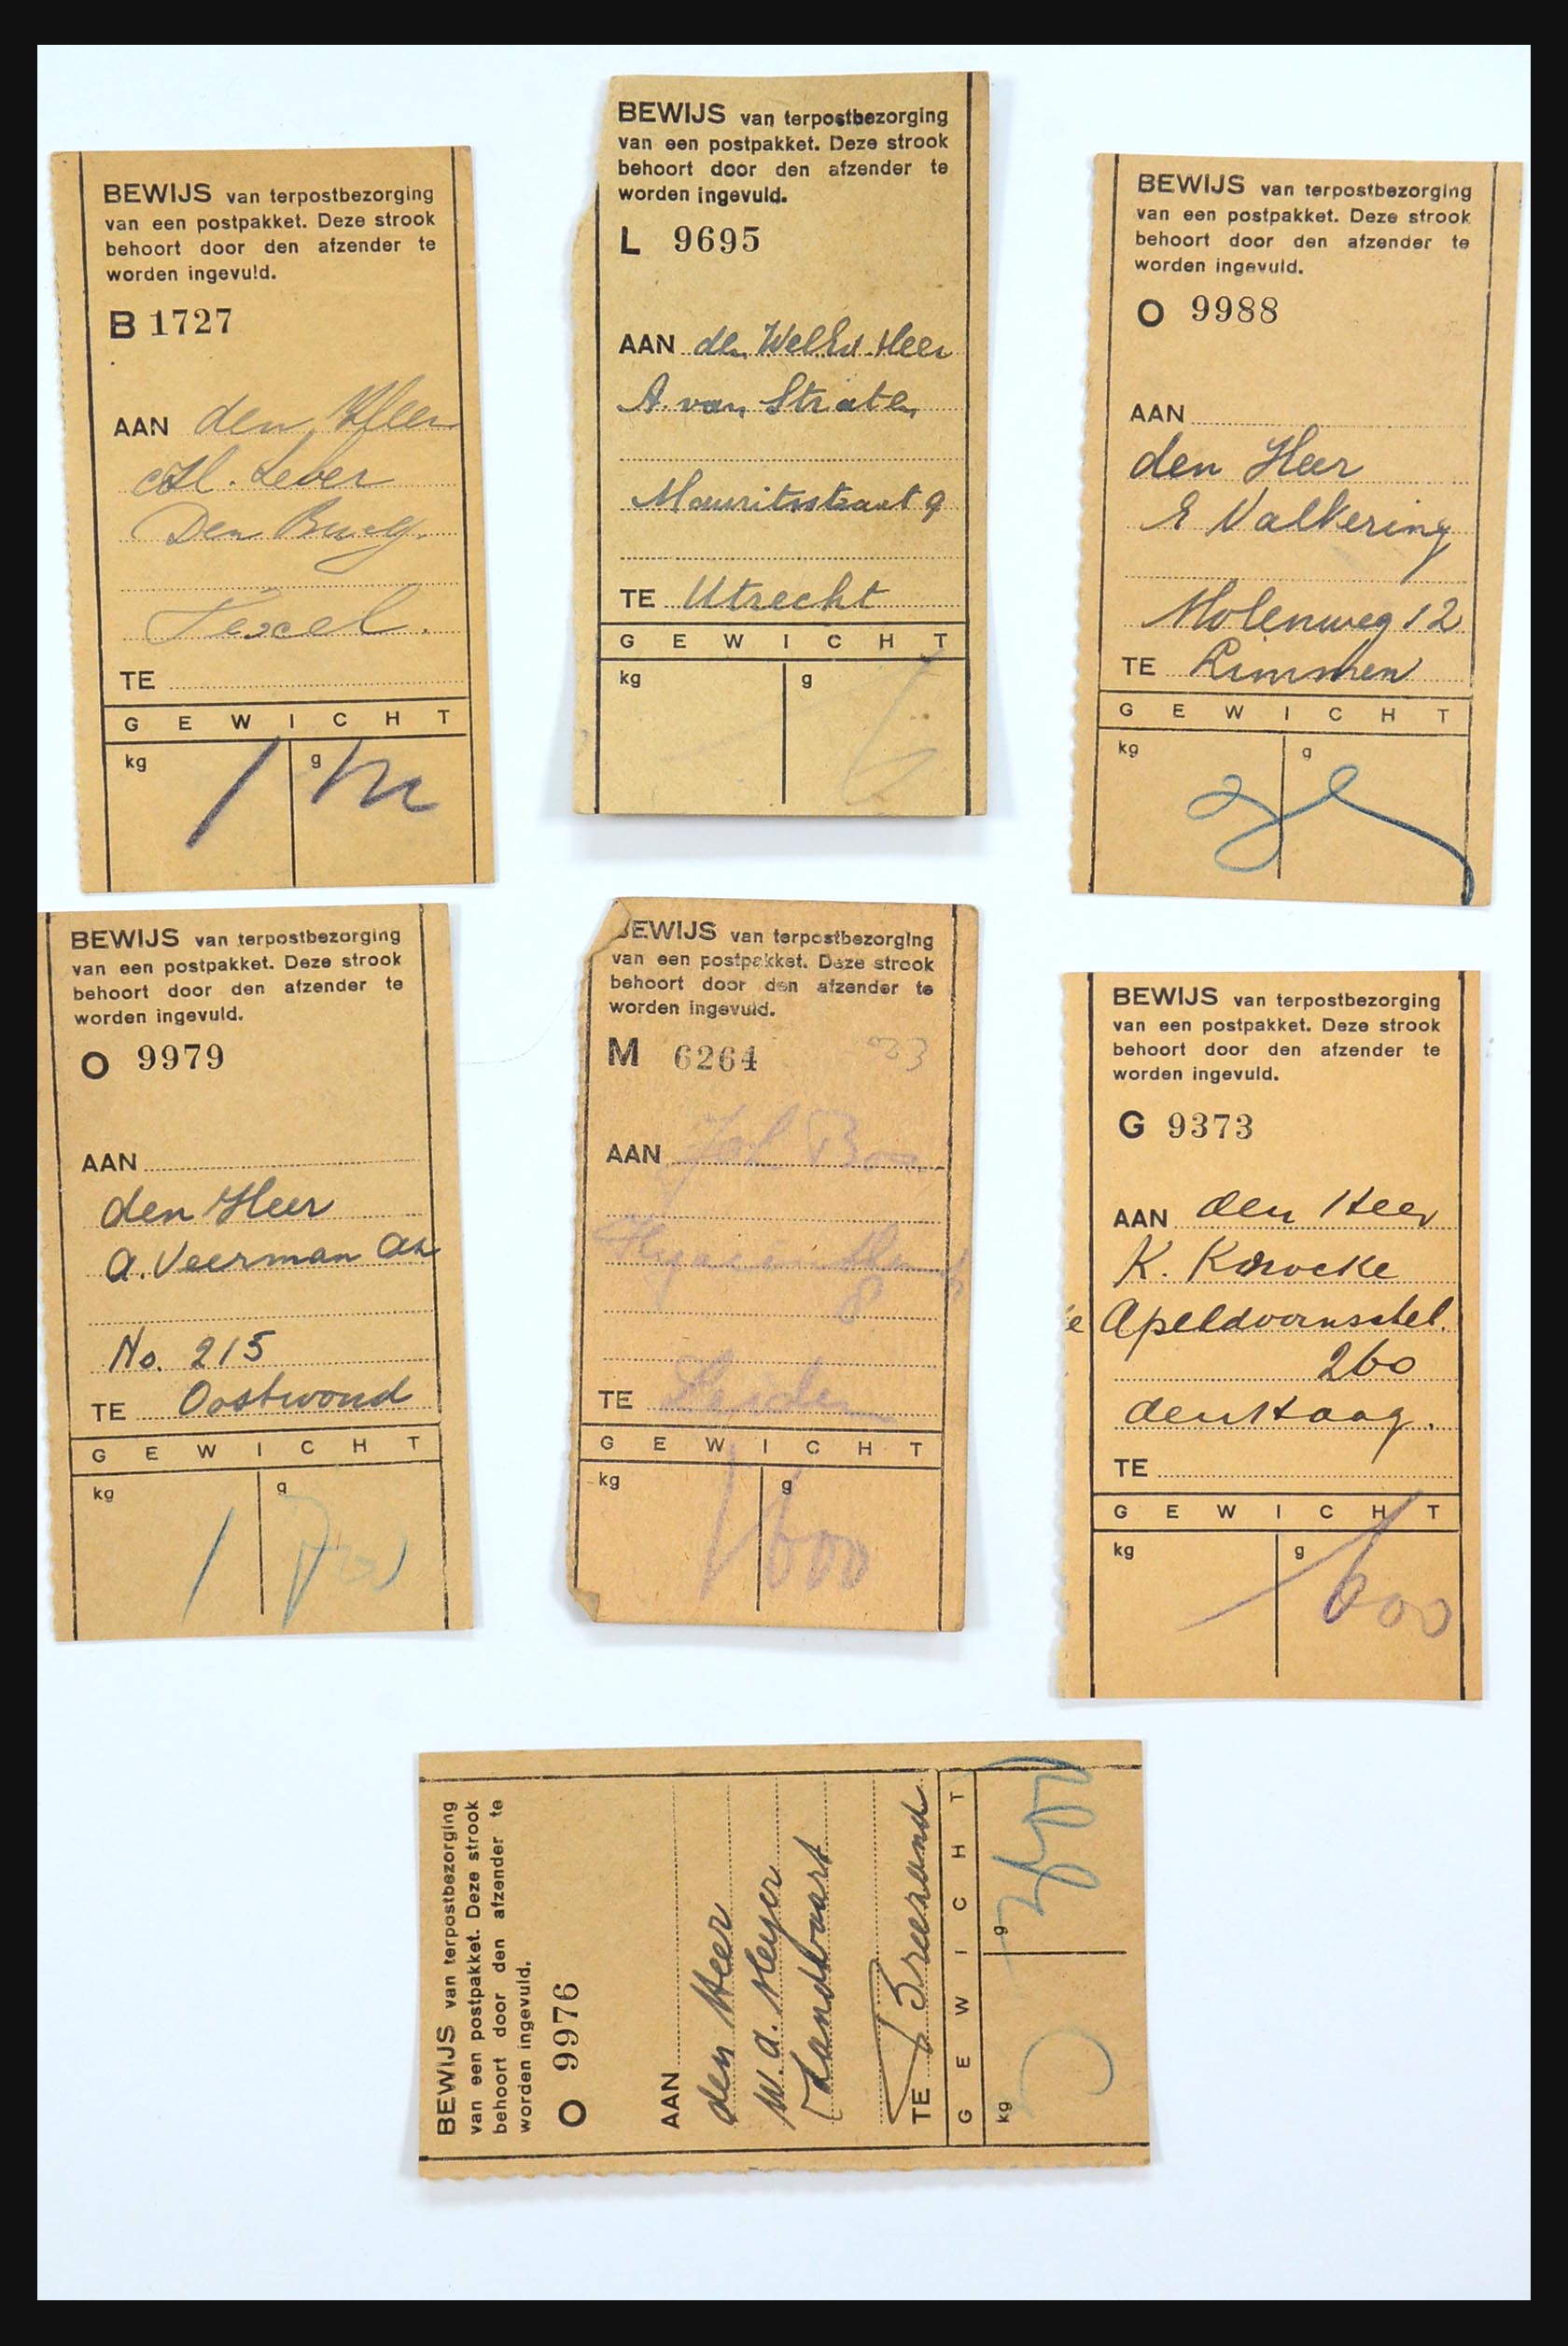 BEWIJS van terpostbezorging
van een postpakket. Deze strook
behoort door den afzender te
worden ingevuld.
B 1727
AAN den Heer
Den Burg.
Texel.
TE
GEWICHT
kg g
1
BEWIJS van terpostbezorging
van een postpakket. Deze strook
behoort door den afzender te
worden ingevuld.
L 9695
AAN den WelEd. Heer
A. van Straten
Mauritsstraat 9
TE Utrecht
GEWICHT
kg g
BEWIJS van terpostbezorging
van een postpakket. Deze strook
behoort door den afzender te
worden ingevuld.
O 9988
AAN
den Heer
E Valkering
Molenweg 12
TE Limmen
GEWICHT
kg g
BEWIJS van terpostbezorging
van een postpakket. Deze strook
behoort door den afzender te
worden ingevuld.
O 9979
AAN
den Heer
A. Veerman Az
No. 215
TE Oostwoud
GEWICHT
kg g
1
BEWIJS van terpostbezorging
van een postpakket. Deze strook
behoort door den afzender te
worden ingevuld.
M 6264
AAN
8
TE Leiden
GEWICHT
kg g
1 600
BEWIJS van terpostbezorging
van een postpakket. Deze strook
behoort door den afzender te
worden ingevuld.
G 9373
AAN den Heer
K.
Apeldoornschel.
260
den Haag.
TE
GEWICHT
kg g
600
BEWIJS van terpostbezorging
van een postpakket. Deze strook
behoort door den afzender te
worden ingevuld.
O 9976
AAN
den Heer
W. A. Meyer
Zandvaart
TE Breezand
GEWICHT
kg g